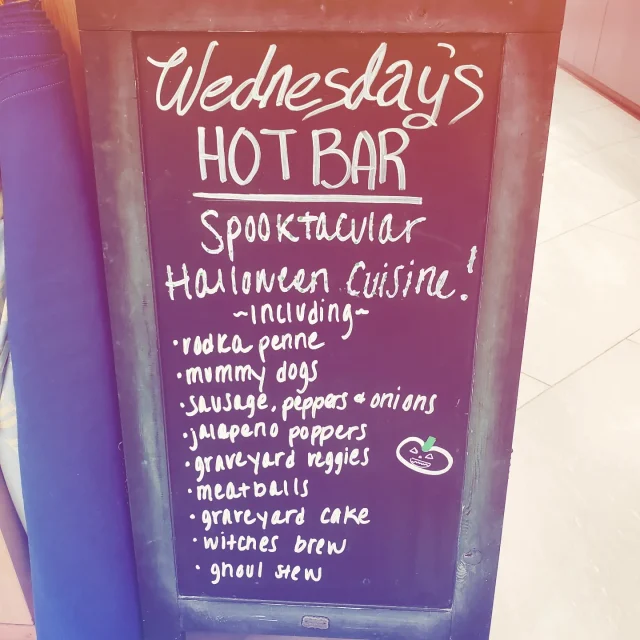 Wednesday's
HOT BAR
Spooktacular
Halloween Cuisine!
~including~
• vodka penne
• mummy dogs
• sausage, peppers & onions
• jalapeno poppers
• graveyard veggies
• meatballs
• graveyard cake
• witches brew
• ghoul stew